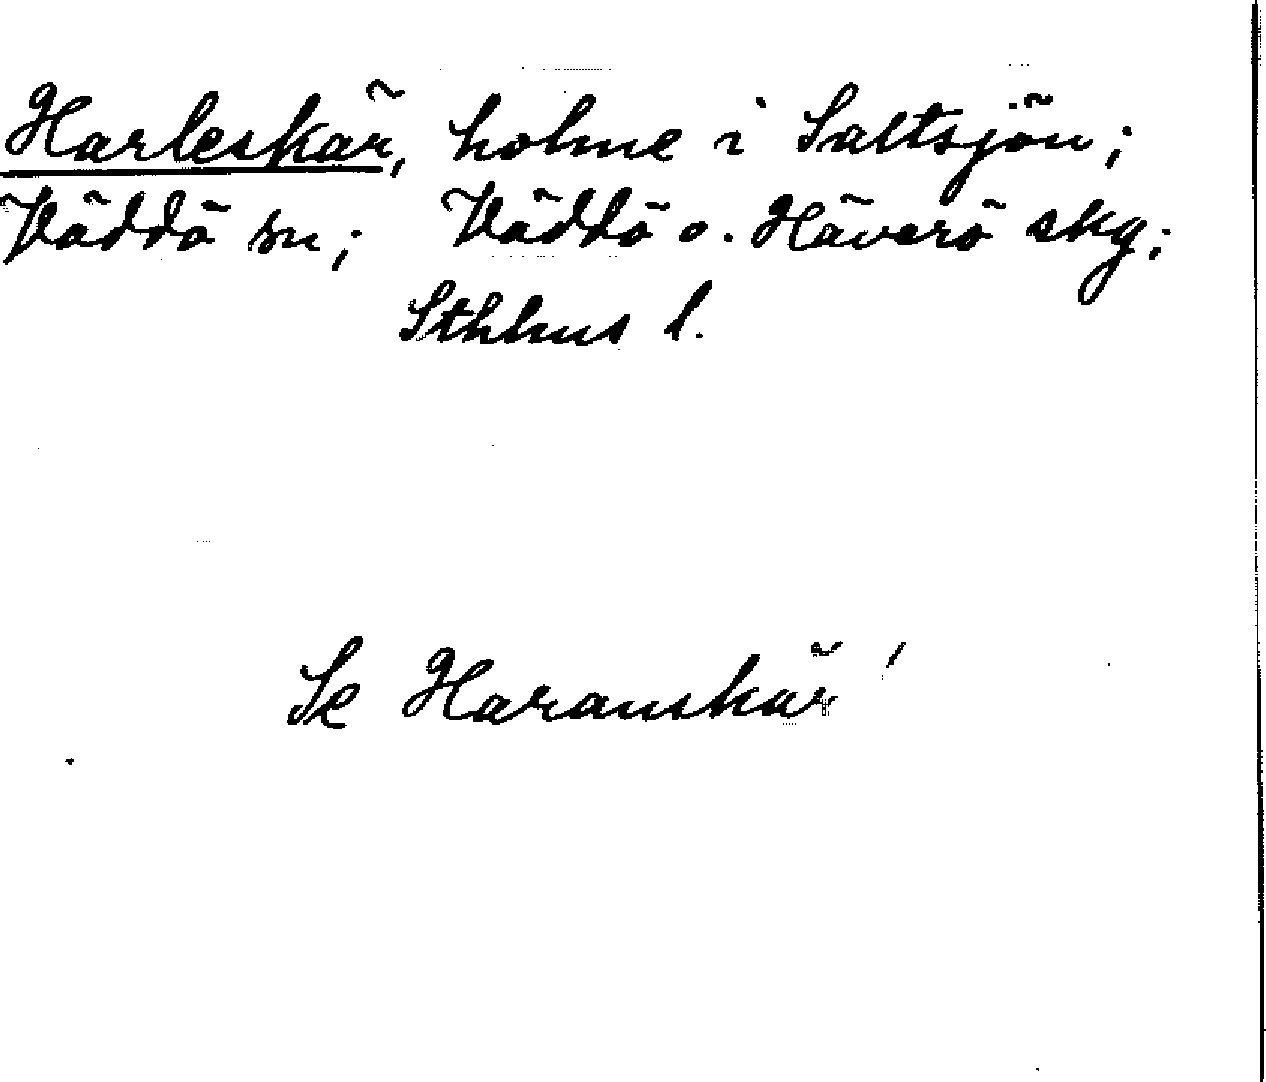 Harleskär, holme i Saltsjön;
Väddö sn; Väddö o. Häverö skg;
Sthlms l.
Se Haranskär!